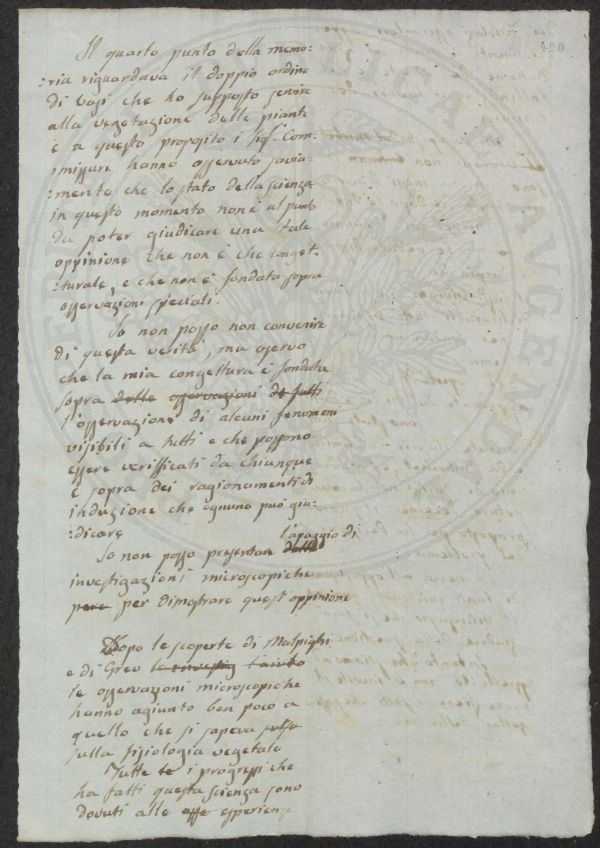 420
Il quarto punto della memo:
:ria riguardava il doppio ordine
di vasi che ho supposto servire
alla vegetazione delle piante
e a questo proposito i Sig.ri Com:
:missari hanno osservato savia:
:mente che lo stato della scienza
in questo momento non è al punto
da poter giudicare una tale
oppinione che non è che conget:
:turale, e che non è fondata sopra
osservazioni speciali.
Io non posso non convenire
di questa verità, ma osservo
che la mia congettura è fondata
sopra delle osservazioni de fatti
l'osservazione di alcuni fenomeni
visibili a tutti e che possono
essere verificati da chiunque
e sopra dei ragionamenti di
induzione che ognuno può giu:
:dicare
Io non posso presentare delle l'apoggio di
investigazioni microscopiche
pere per dimostrare quest oppinione
Dopo le scoperte di Malpighi
e di Grew le investig
le osservazioni microscopiche
hanno agiunto ben poco a
quello che si sapeva
sulla fisiologia vegetale
Tutte te i progressi che
ha fatti questa scienza sono
dovuti alle esperienze